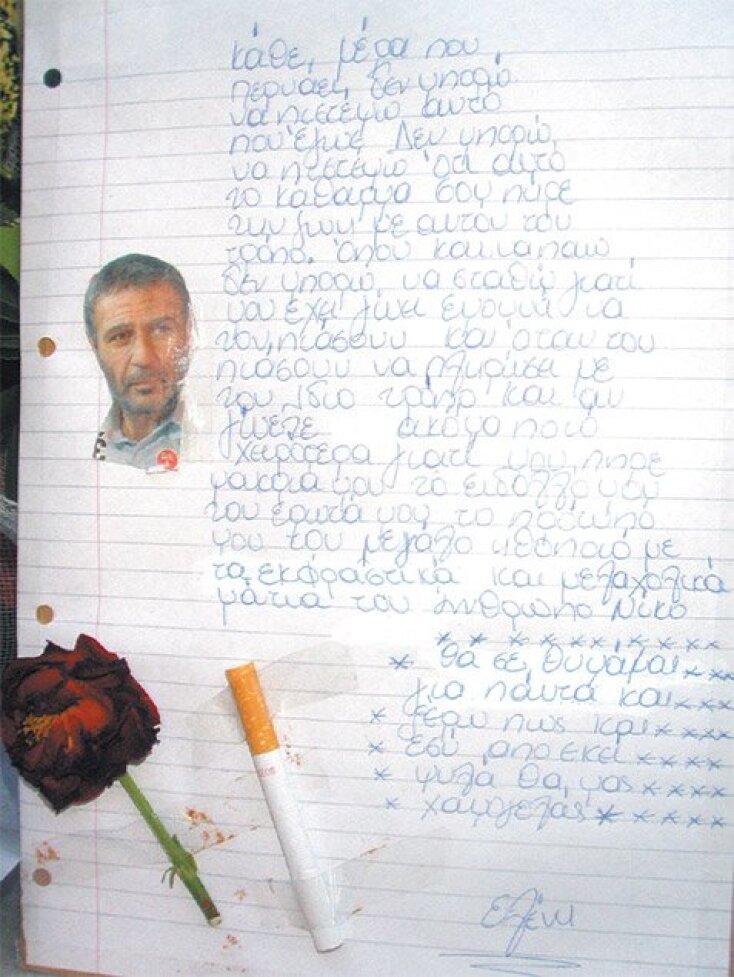 κάθε, μέρα που
περνάει, δεν μπορώ
να πιστέψω αυτό
που έγινε Δεν μπορώ,
να πιστέψω ότι αυτό
το κάθαρμα σου πήρε
την ζωή με αυτον τον
τρόπο. Όπου και να παω
δεν μπορώ, να σταθώ γιατί
μου έχει γίνει εμονή να
τον πιάσουν και όταν τον
πιάσουν να πληρώσει με
τον ίδιο τρόπο και αν
γίνετε ακόμα ποιό
χειρότερα γιατί μου πήρε
μακρια μου το
του έρωτά μου το πρότυπό
μου τον μεγάλο ηθοποιό με
τα εκφραστικά και μελαχολικά
μάτια τον άνθρωπο Νίκο
* * * * * * * * * *
* θα σε θυμάμαι * * *
για πάντα και * * * *
* ξέρω πως και * * * *
* εσύ απο εκεί * * * *
* ψηλά θα μας * * * *
* χαμογελάς * * * * * *
Ελένη